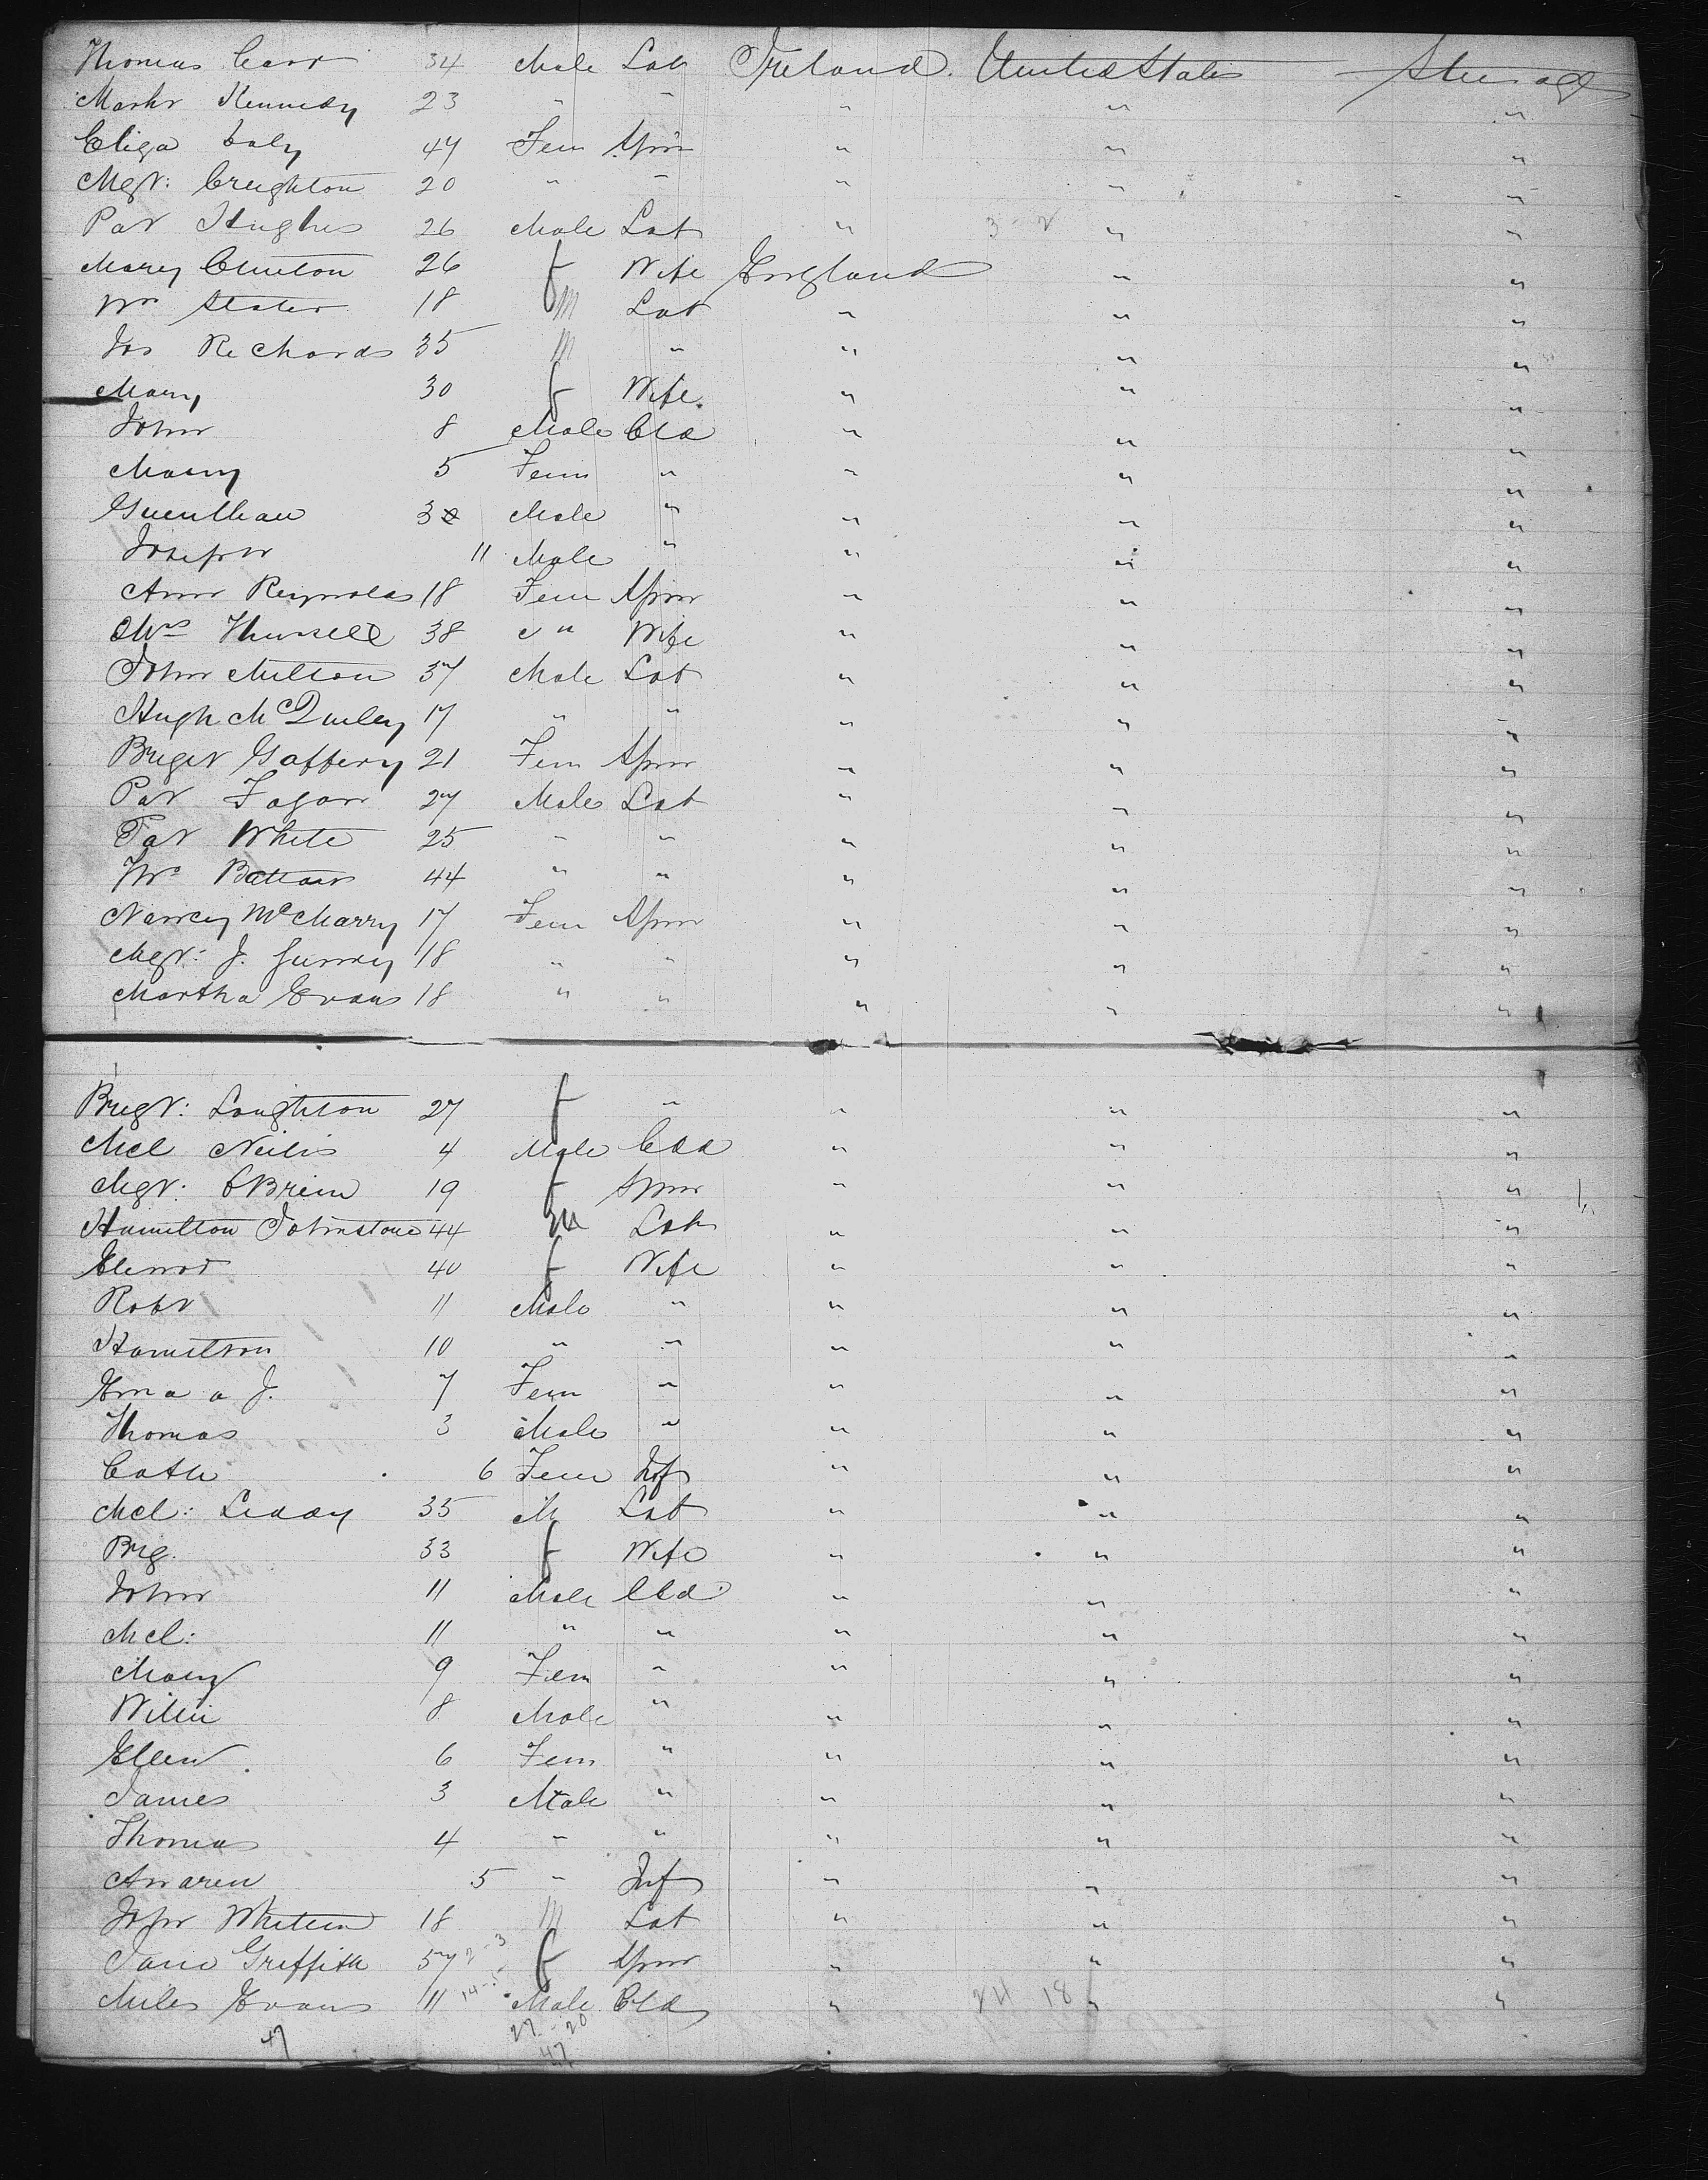 Thomas Carr 34 Male Lab Ireland United States Steerage
Markr Kennedy 23 " " " " "
Eliza Daly 47 Fem Spin " " "
Mgt: Creighton 20 " " " " "
Pat Hughes 26 Male Lab " 3-2 " "
Mary Clinton 26 f Wife England " "
Wm Slater 18 M Lab " " "
Jos Richards 35 M " " " "
Mary 30 f Wife " " "
John 8 Male Cld " " "
Mary 5 Fem " " " "
3 Male " " " "
Joseph 11 Male " " " "
Ann Reynolds 18 Fem Spin " " "
Mrs 38 " Wife " " "
John Milton 37 Male Lab " " "
Hugh McDurley 17 " " " " "
Briget Gaffery 21 Fem Spin " " "
Pat Fagan 27 Male Lab " " "
Pat White 25 " " " " "
Wm 44 " " " " "
Nancy McMarry 17 Fem Spin " " "
Mgt: J. 18 " " " " "
Martha Evans 18 " " " " "
Brigt: Loughton 27 f " " " "
Mcl Neilis 4 Male Cld " " "
Mgt: OBrien 19 f Spin " " "
Hamilton Johnstone 44 M Lab " " "
Elenor 40 f Wife " " "
Robt 11 Male " " " "
Hamilton 10 " " " " "
J. 7 Fem " " " "
Thomas 3 Male " " " "
Cath 6 Fem Inf " " "
Mcl: Leddy 35 M Lab " " "
Brig. 33 f Wife " " "
John 11 Male Cld " " "
Mcl: 11 " " " " "
Mary 9 Fem " " " "
Willie 8 Male " " " "
Ellen 6 Fem " " " "
James 3 Male " " " "
Thomas 4 " " " " "
Andrew 5 " Inf " " "
18 M Lab " " "
Jane Griffith 57 2-3 f Spin " " "
Miles Evans 11 14-5 Male Cld " 24 18 " "
47 27-20
47